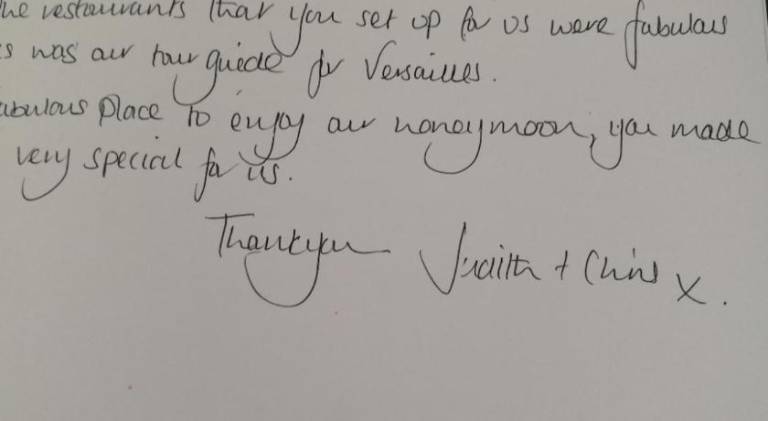 he restaurants that you set up for us were fabulous
s was our tour guide for Versailles.
abulous place to enjoy our honeymoon, you made
very special for us.
Thankyou Judith + Chris x.